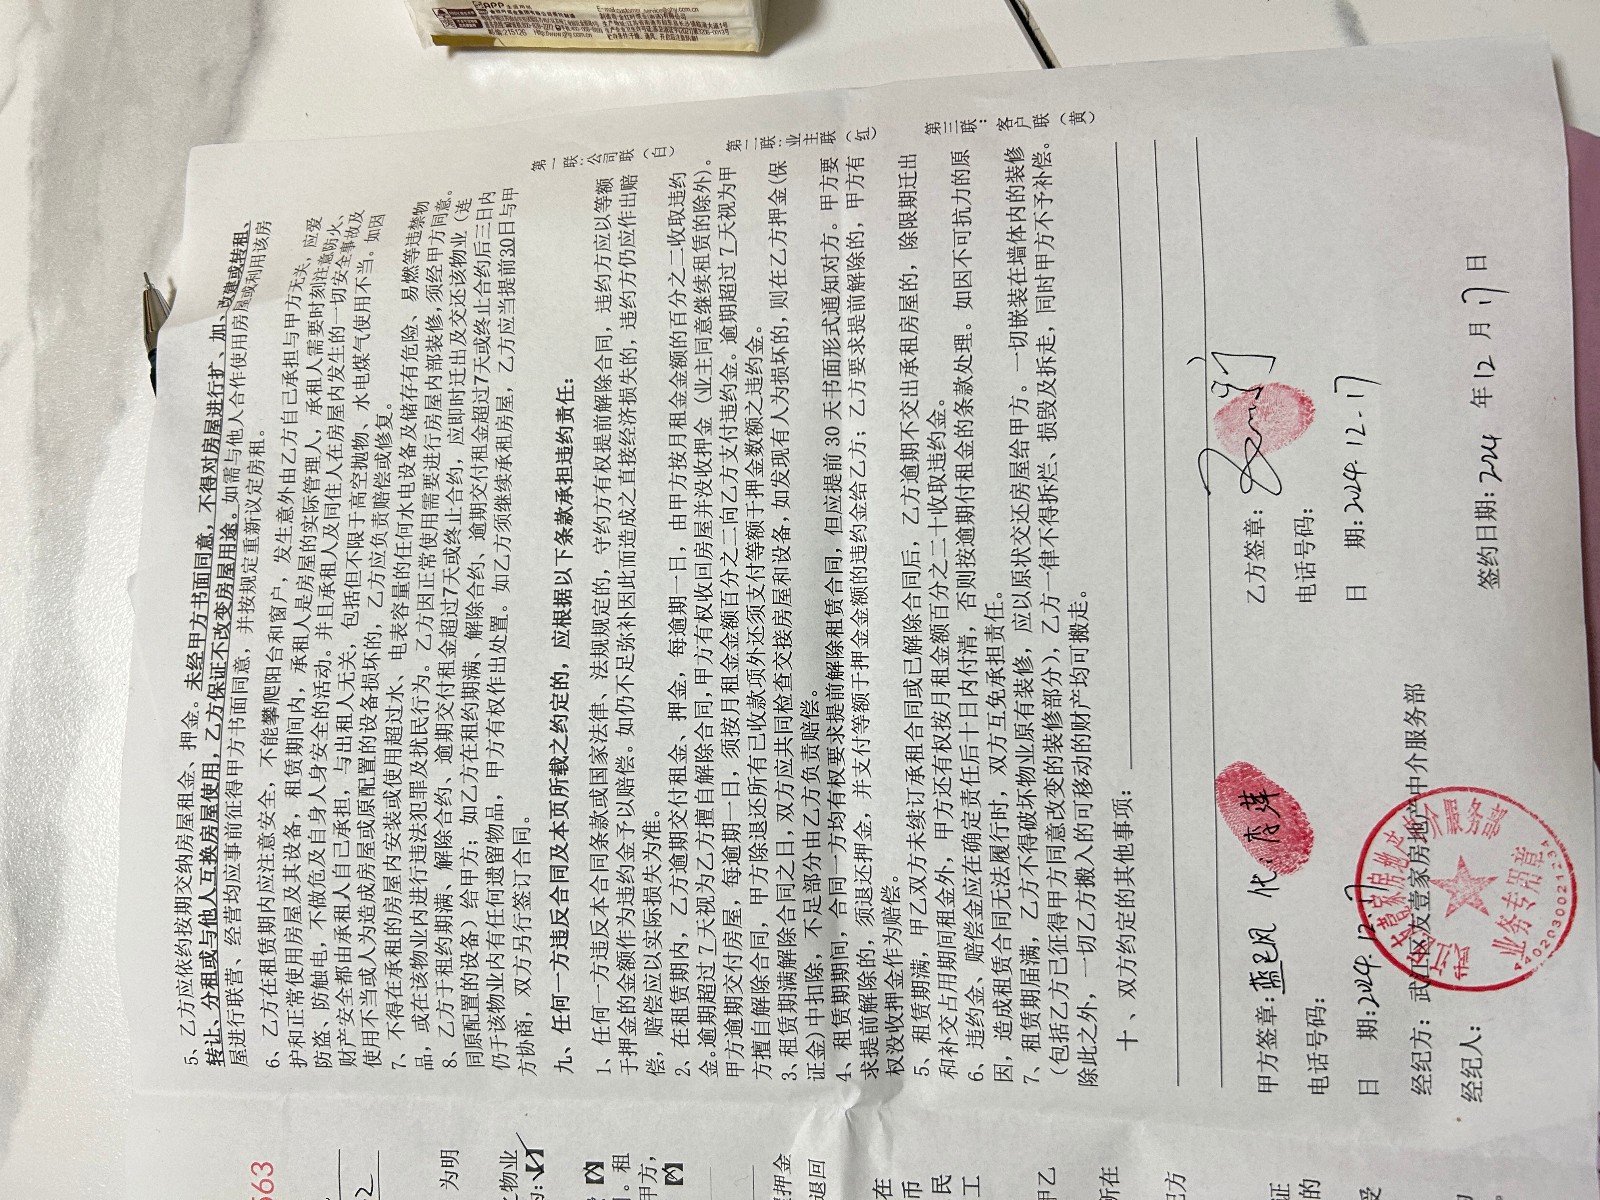 5、乙方应依约按期交纳房屋租金、押金。未经甲方书面同意，不得对房屋进行扩、加、改建或转租、
转让、分租或与他人互换房屋使用，乙方保证不改变房屋用途。如需与他人合作使用房屋或利用该房
屋进行联营、经营均应事前征得甲方书面同意，并按规定重新议定房租。
6、乙方在租赁期内应注意安全，不能攀爬阳台和窗户，发生意外由乙方自己承担与甲方无关，应爱
护和正常使用房屋及其设备，租赁期间内，承租人是房屋的实际管理人，承租人需要时刻注意防火、
防盗、防触电，不做危及自身人身安全的活动。并且承租人及同住人在房屋内发生的一切安全事故及
财产安全都由承租人自己承担，与出租人无关，包括但不限于高空抛物、水电煤气使用不当。如因
使用不当或人为造成房屋或原配置的设备损坏的，乙方应负责赔偿或修复。
7、不得在承租的房屋内安装或使用超过水、电表容量的任何水电设备及储存有危险、易燃等违禁物
品，或在该物业内进行违法犯罪及扰民行为。乙方因正常使用需要进行房屋内部装修，须经甲方同意。
8、乙方于租约期满、解除合约、逾期交付租金超过7天或终止合约，应即时迁出及交还该物业（连
同原配置的设备）给甲方；如乙方在租约期满、解除合约、逾期交付租金超过7天或终止合约后三日内
仍于该物业内有任何遗留物品，甲方有权作出处置。如乙方须继续承租房屋，乙方应当提前30日与甲
方协商，双方另行签订合同。
九、任何一方违反合同及本页所载之约定的，应根据以下条款承担违约责任：
1、任何一方违反本合同条款或国家法律、法规规定的，守约方有权提前解除合同，违约方应以等额
于押金的金额作为违约金予以赔偿。如仍不足弥补因此而造成之直接经济损失的，违约方仍应作出赔
偿，赔偿应以实际损失为准。
2、在租赁期内，乙方逾期交付租金、押金，每逾期一日，由甲方按月租金金额的百分之二收取违约
金。逾期超过 7 天视为乙方擅自解除合同，甲方有权收回房屋并没收押金（业主同意继续租赁的除外）。
甲方逾期交付房屋，每逾期一日，须按月租金金额百分之二向乙方支付违约金。逾期超过 7 天视为甲
方擅自解除合同，甲方除退还所有已收款项外还须支付等额于押金数额之违约金。
3、租赁期满解除合同之日，双方应共同检查交接房屋和设备，如发现有人为损坏的，则在乙方押金(保
证金）中扣除，不足部分由乙方负责赔偿。
4、租赁期期间，合同一方均有权要求提前解除租赁合同，但应提前 30 天书面形式通知对方。甲方要
求提前解除的，须退还押金，并支付等额于押金金额的违约金给乙方；乙方要求提前解除的，甲方有
权没收押金作为赔偿。
5、租赁期满，甲乙双方未续订承租合同或已解除合同后，乙方逾期不交出承租房屋的，除限期迁出
和补交占用期间租金外，甲方还有权按月租金额百分之二十收取违约金。
6、违约金、赔偿金应在确定责任后十日内付清，否则按逾期付租金的条款处理。如因不可抗力的原
因，造成租赁合同无法履行时，双方互免承担责任。
7、租赁期届满，乙方不得破坏物业原有装修，应以原状交还房屋给甲方。一切嵌装在墙体内的装修
（包括乙方已征得甲方同意改变的装修部分），乙方一律不得拆烂、损毁及拆走，同时甲方不予补偿。
除此之外，一切乙方搬入的可移动的财产均可搬走。
十、双方约定的其他事项：
甲方签章： 代 乙方签章：
电话号码： 电话号码：
日 期：2024.12.17 日 期：2024.12.17
经纪方：武江区友壹家房地产中介服务部
经纪人： 签约日期：2024 年 12 月 17 日
业务专用章
第一联：公司联（白）
第二联：业主联（红）
第三联：客户联（黄）
563
为明
物业
租
甲方，
押金
退回